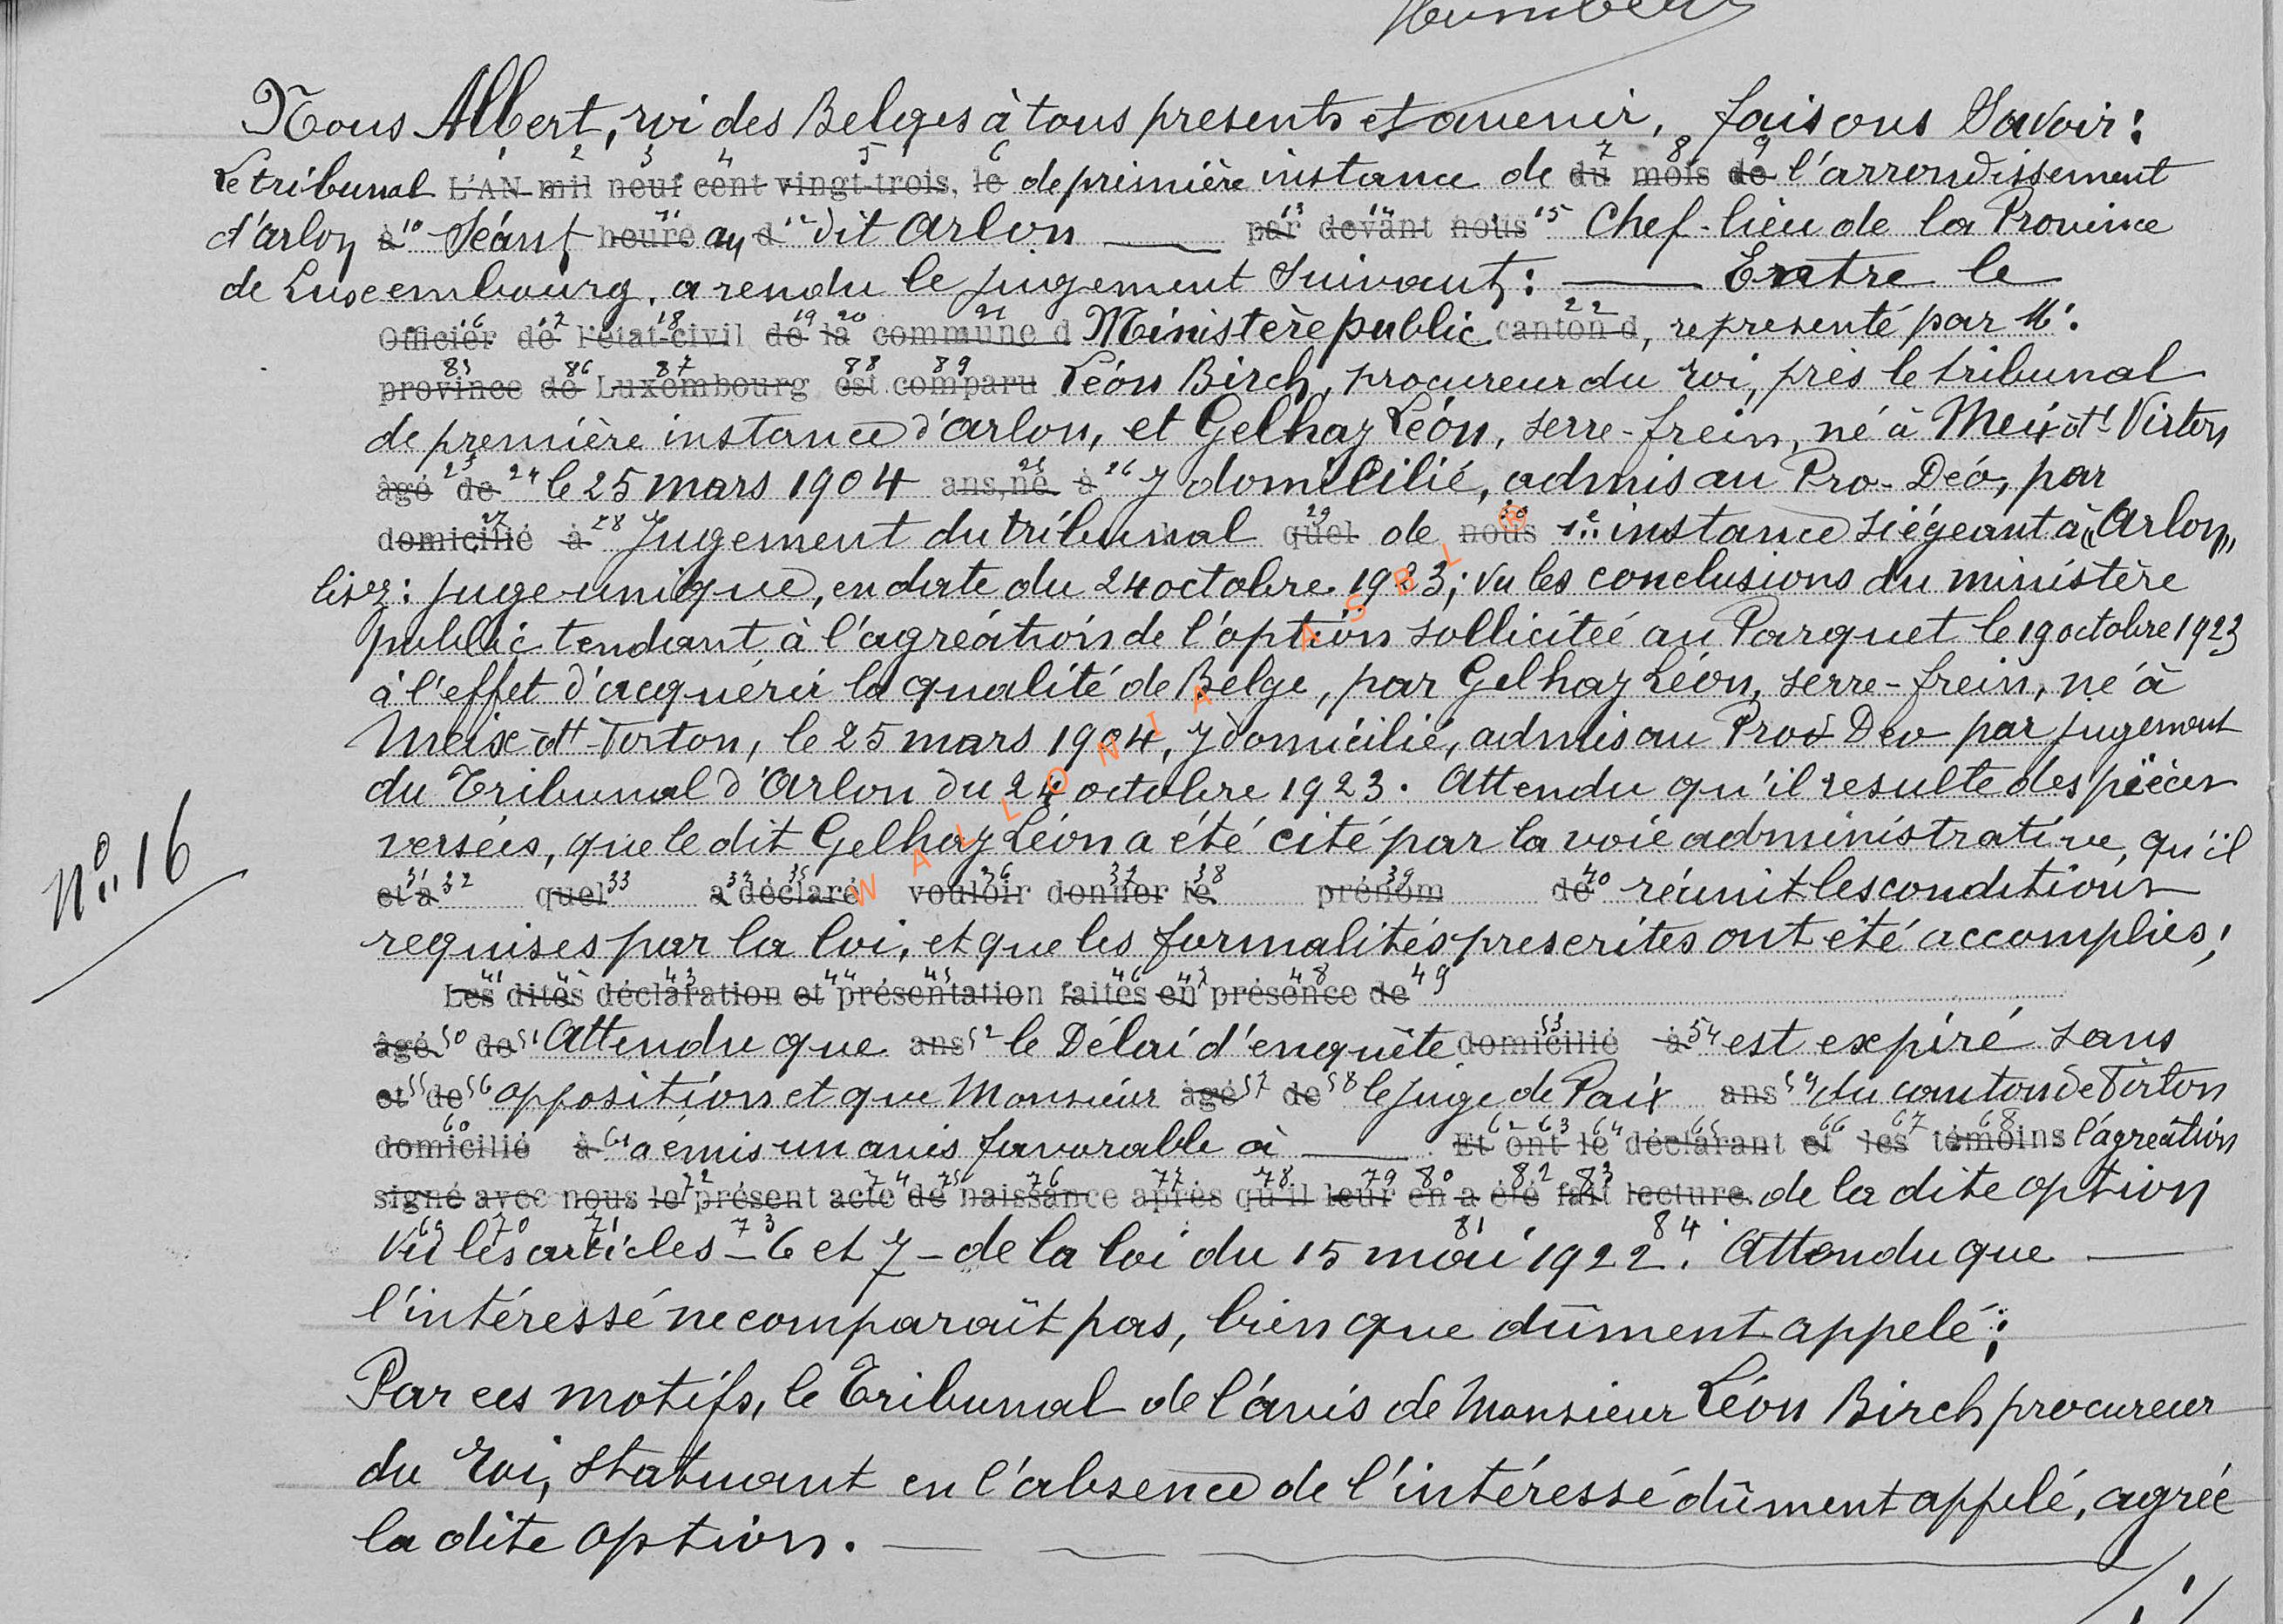 Nous Albert, roi des Belges à tous présents et avenir, faisons Savoir:
1 2 3 4 5 6 7 8 9
Le tribunal L'AN mil neuf cent vingt-trois, le de première instance de du mois de l'arrondissement
d'arlon à 10 Séant heure 11 au d 12 dit Arlon — par 13 devant 14 nous 15 Chef-lieu de la Province
de Luxembourg, a rendu le jugement Suivant: — Entre le
Officier 16 de 17 l'état-civil 18 de 19 la 20 commune 21 d Ministère public canton 22 d, représenté par Mr.
province 85 de 86 Luxembourg 87 est 88 comparu 89 Léon Birch, procureur du roi, près le tribunal
de première instance d'arlon, et Gelhay Léon, serre-frein, né à Meix dt Virton
âgé 23 de 24 le 25 mars 1904 ans, né 25 à 26 y domicilié, admis au Pro-Déo, par
domicilié 27 à 28 Jugement du tribunal quel 29 de nous 30 1re instance siégeant à "Arlon"
lisez: juge unique, en date du 24 octobre 1923; vu les conclusions du ministère
public tendant à l'agréation de l'option sollicitée au Parquet le 19 octobre 1923
à l'effet d'acquérir la qualité de Belge, par Gelhay Léon, serre-frein, né à
Meix dt Virton, le 25 mars 1904, y domicilié, admis au Pro Deo par jugement
du Tribunal d'Arlon du 24 octobre 1923. Attendu qu'il resulte des pièces
versées, que le dit Gelhay Léon a été cité par la voie administrative, qu'il
N° 16
et à 31 32 quel 33 a 34 déclaré 35 vouloir 36 donner 37 le 38 prénom 39 de 40 réunit les conditions
requises par la loi, et que les formalités prescrites ont été accomplies;
Les 41 dites 42 déclaration 43 et 44 présentation 45 faites 46 en 47 présence 48 de 49
âgé 50 de 51 Attendu que ans 52 le Délai d'enquête domicilié 53 à 54 est expiré sans
et 55 de 56 opposition et que Monsieur âgé 57 de 58 le juge de Paix ans 59 du canton de Virton
domicilié 60 à 61 a émis un avis favorable à — Et 62 ont 63 le 64 déclarant 65 et 66 les 67 témoins 68 l'agréation
signé avec nous le 72 présent acte 74 de 75 naissance 76 après 77 qu'il 78 leur 79 en 80 a été 82 fait 83 lecture. de la dite option
69 70 71 73 81 84
Vu les articles – 6 et 7 – de la loi du 15 mai 1922. Attendu que —
l'intéressé ne comparaît pas, bien que dûment appelé;
Par ces motifs, le Tribunal de l'avis de Monsieur Léon Birch procureur
du Roi, statuant en l'absence de l'intéressé dûment appelé, agrée
la dite option. —
WALLONIA ASBL ®